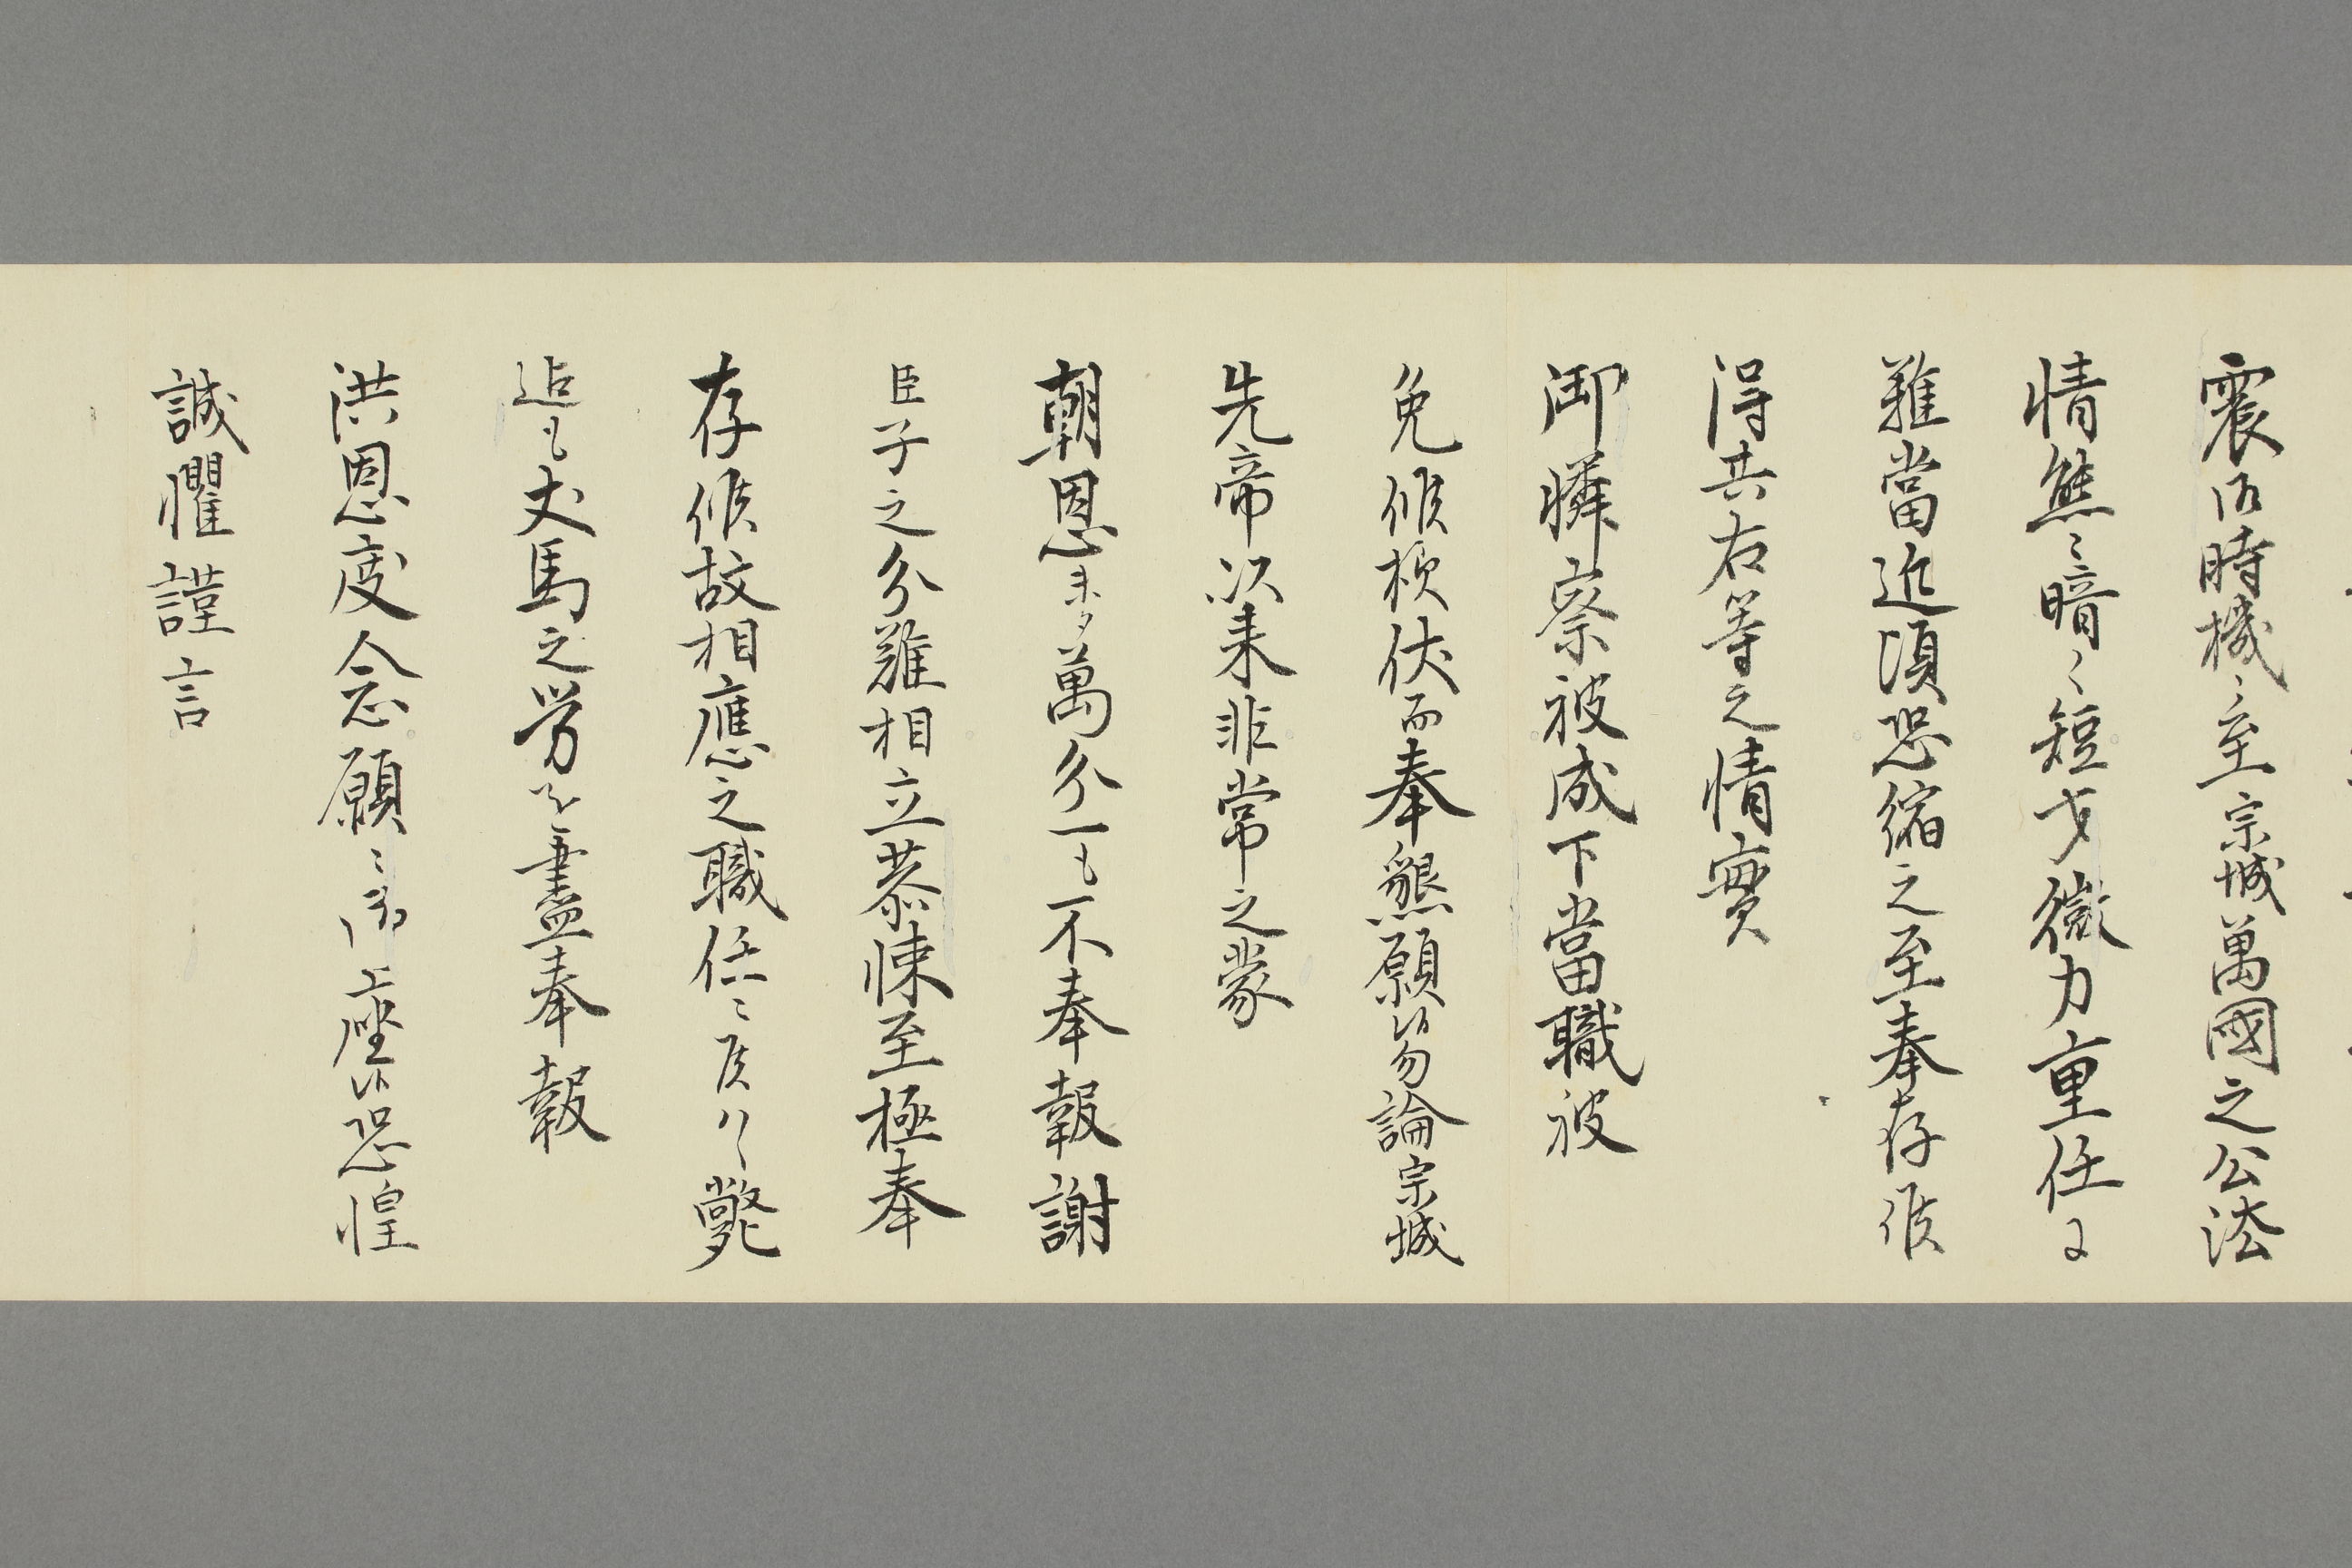 震仍時機ニ至宗城萬國之公法
情態ニ暗く短才微力重任ニ
難當近頃恐縮之至奉存候
得共右等之情實
御憐察被成下當職被
免候様伏而奉懇願候勿論宗城
先帝以来非常之蒙
朝恩未タ萬分一も不奉報謝
臣子之分難相立恭悚至極奉
存候故相應之職任ニ候ハヽ斃
迠も犬馬之労を盡奉報
洪恩度念願ニ御座候恐惶
誠懼謹言